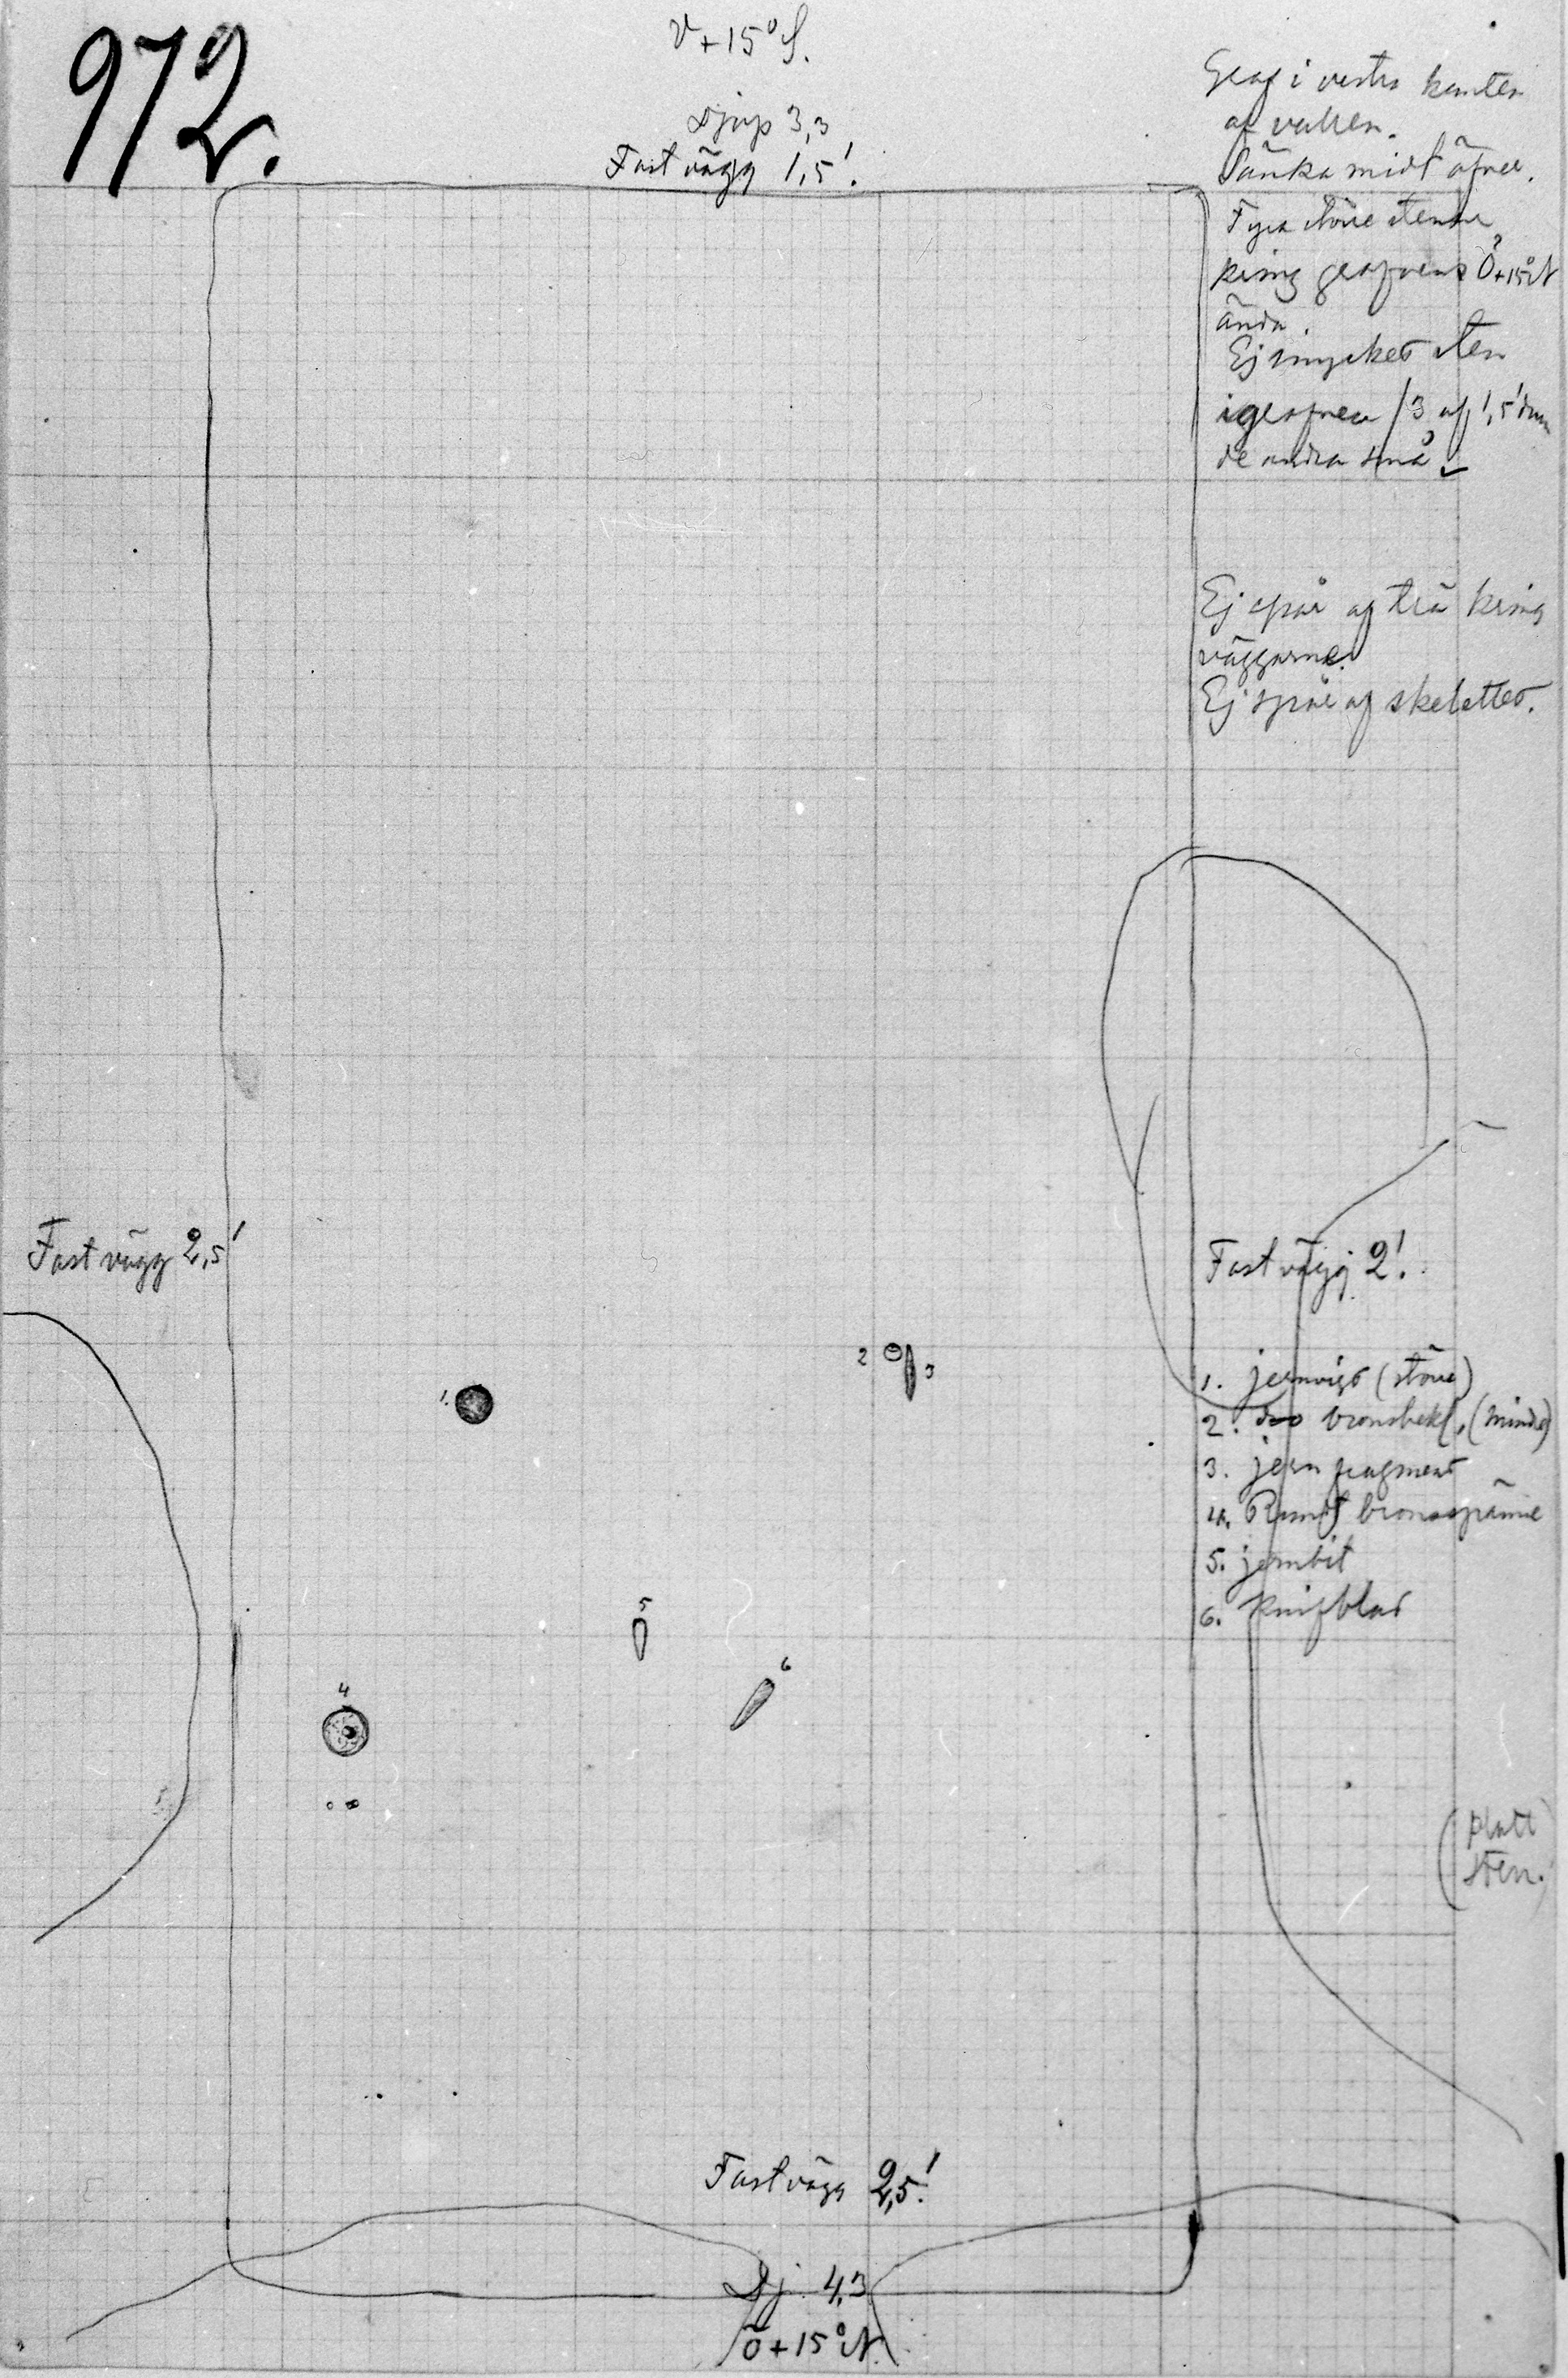 972.
V+15°S.
Djup 3,3
Fast vägg 1,5'.
Graf i vestra kanten
af vallen.
Sänka midt öfver.
Fyra större stenar
kring grafvens Ö+15°N
ända.
Ej mycket sten
i grafven / 3 af 1,5' diam
de andra små
Ej spår af trä kring
väggarne.
Ej spår af skelettet.
Fast vägg 2,5'
Fast vägg 2'.
1
2
3
4
5
6
1. jernvigt (större)
2. do bronsbekl. (mindre)
3. jern fragment
4. Rundt bronsspänne
5. jernbit
6. Knifblad
(platt
sten.)
Fast vägg 2,5'.
Dj. 4,3
Ö+15°N.